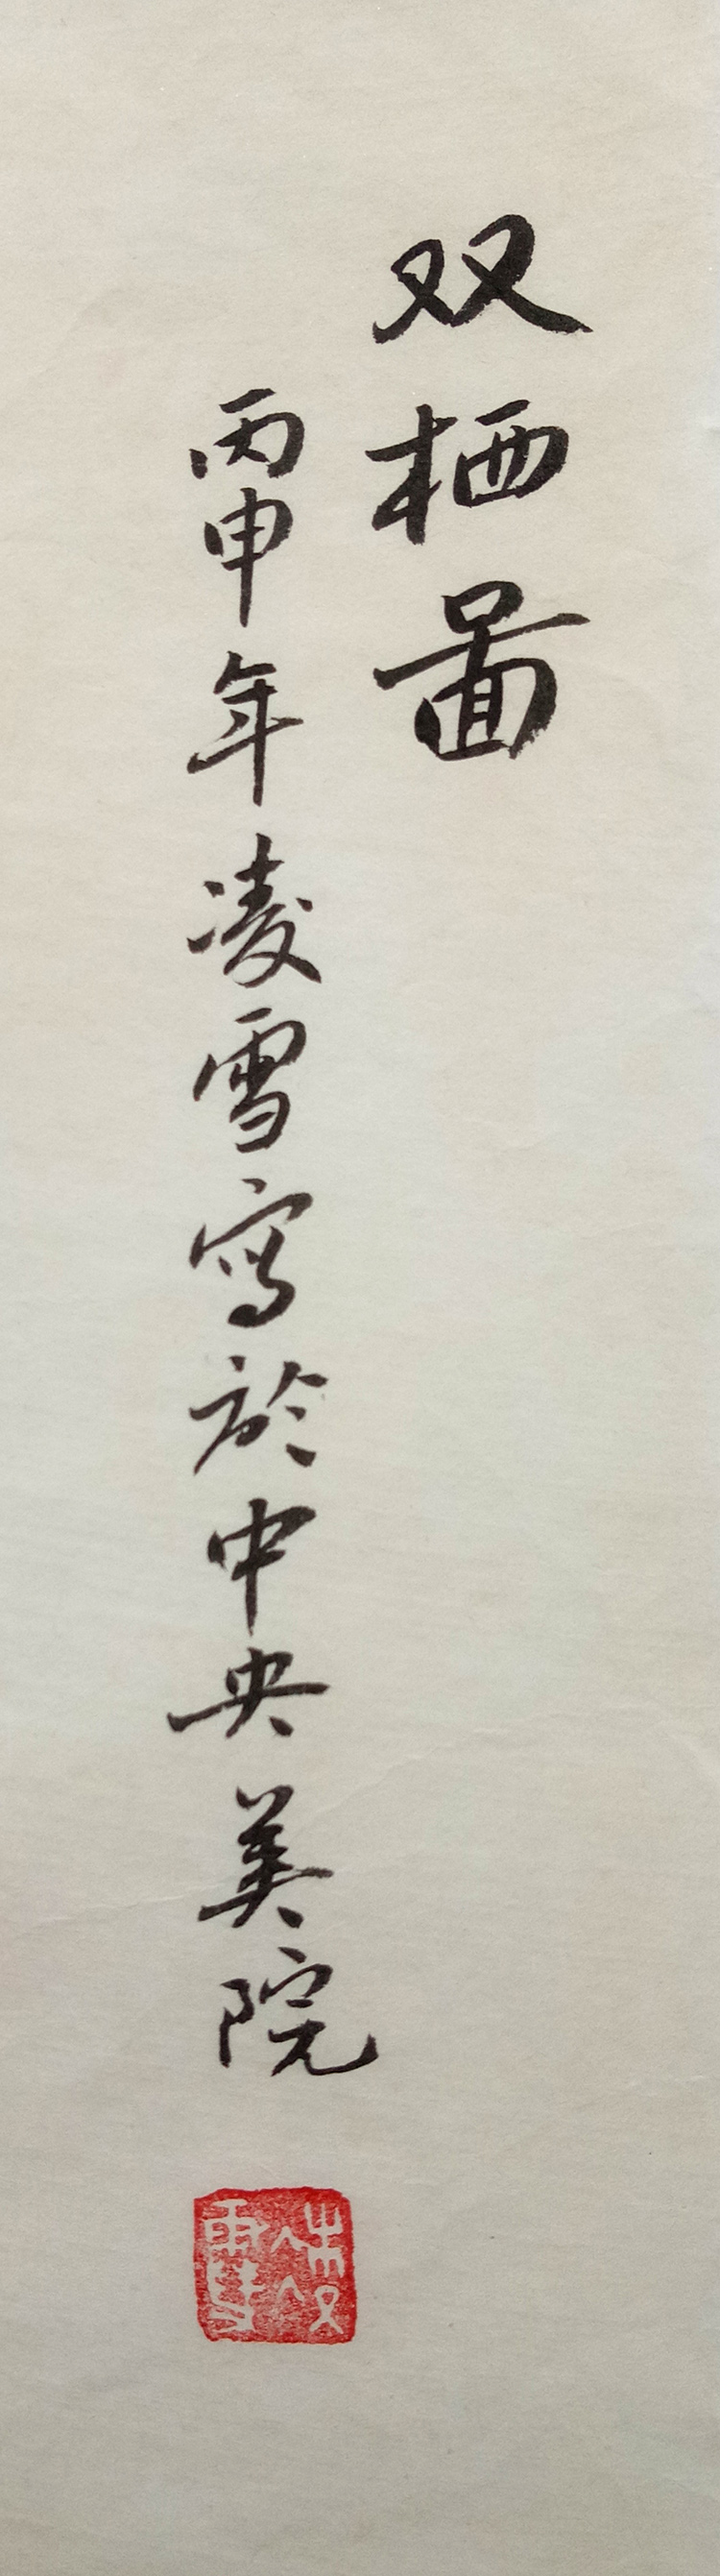 双栖图
丙申年凌雪写於中央美院
凌雪